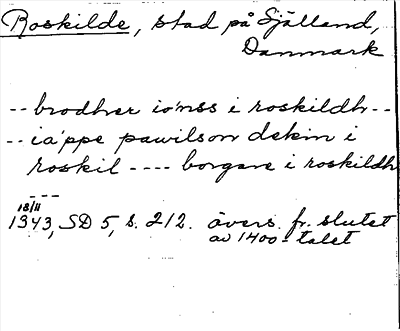 Roskilde, stad på Själland,
Danmark
-- brodher io'nss i roskildh --
-- ia'ppe pawilson dekin i
roskil ---- borgare i roskildh
---
18/11
1343, SD 5, s. 212. övers. fr. slutet
av 1400-talet